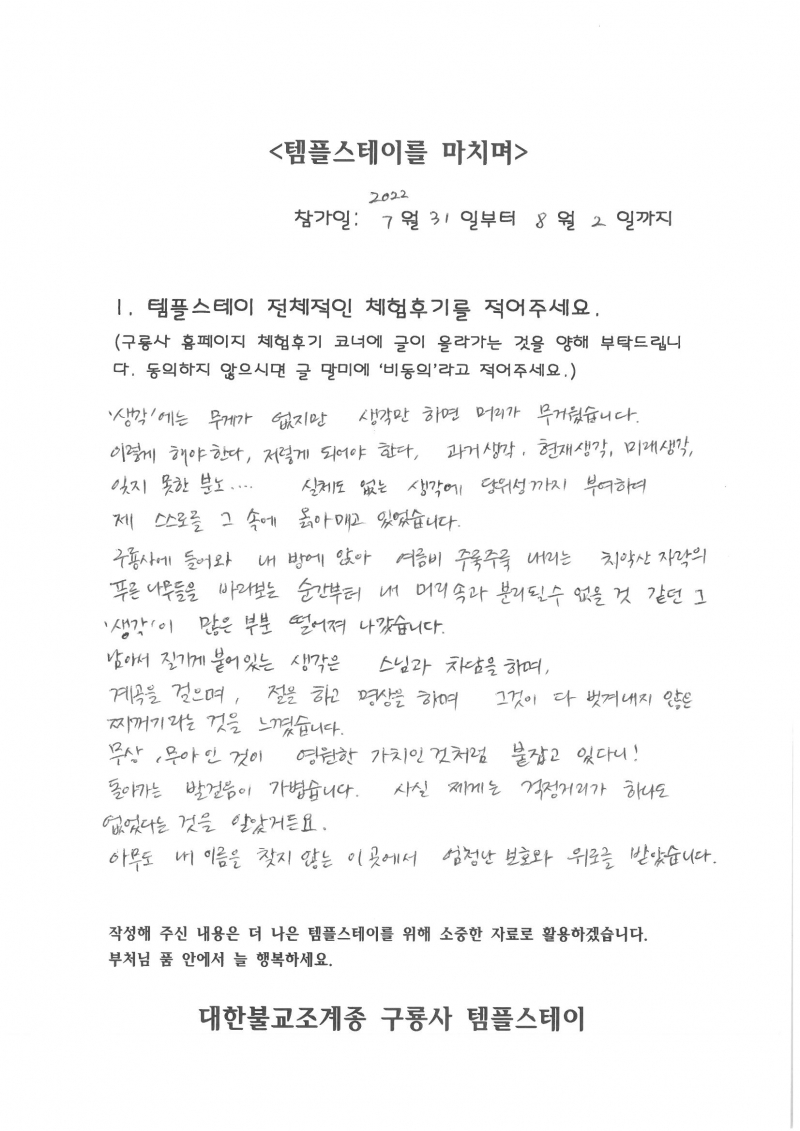 <템플스테이를 마치며>
2022
참가일: 7 월 31 일부터 8 월 2 일까지
1. 템플스테이 전체적인 체험후기를 적어주세요.
(구룡사 홈페이지 체험후기 코너에 글이 올라가는 것을 양해 부탁드립니
다. 동의하지 않으시면 글 말미에 '비동의'라고 적어주세요.)
'생각'에는 무게가 없지만 생각만 하면 머리가 무거웠습니다.
이렇게 해야한다, 저렇게 되어야 한다, 과거생각, 현재생각, 미래생각,
잊지 못한 분노.... 실체도 없는 생각에 당위성까지 부여하며
제 스스로를 그 속에 옭아매고 있었습니다.
구룡사에 들어와 내 방에 앉아 여름비 주룩주룩 내리는 치악산 자락의
푸른 나무들을 바라보는 순간부터 내 머리속과 분리될수 없을 것 같던 그
'생각'이 많은 부분 떨어져 나갔습니다.
남아서 질기게 붙어있는 생각은 스님과 차담을 하며,
계곡을 걸으며, 절을 하고 명상을 하며 그것이 다 벗겨내지 않은
찌꺼기라는 것을 느꼈습니다.
무상, 무아인 것이 영원한 가치인것처럼 붙잡고 있다니!
돌아가는 발걸음이 가볍습니다. 사실 제게는 걱정거리가 하나도
없었다는 것을 알았거든요.
아무도 내 이름을 찾지 않는 이 곳에서 엄청난 보호와 위로를 받았습니다.
작성해 주신 내용은 더 나은 템플스테이를 위해 소중한 자료로 활용하겠습니다.
부처님 품 안에서 늘 행복하세요.
대한불교조계종 구룡사 템플스테이